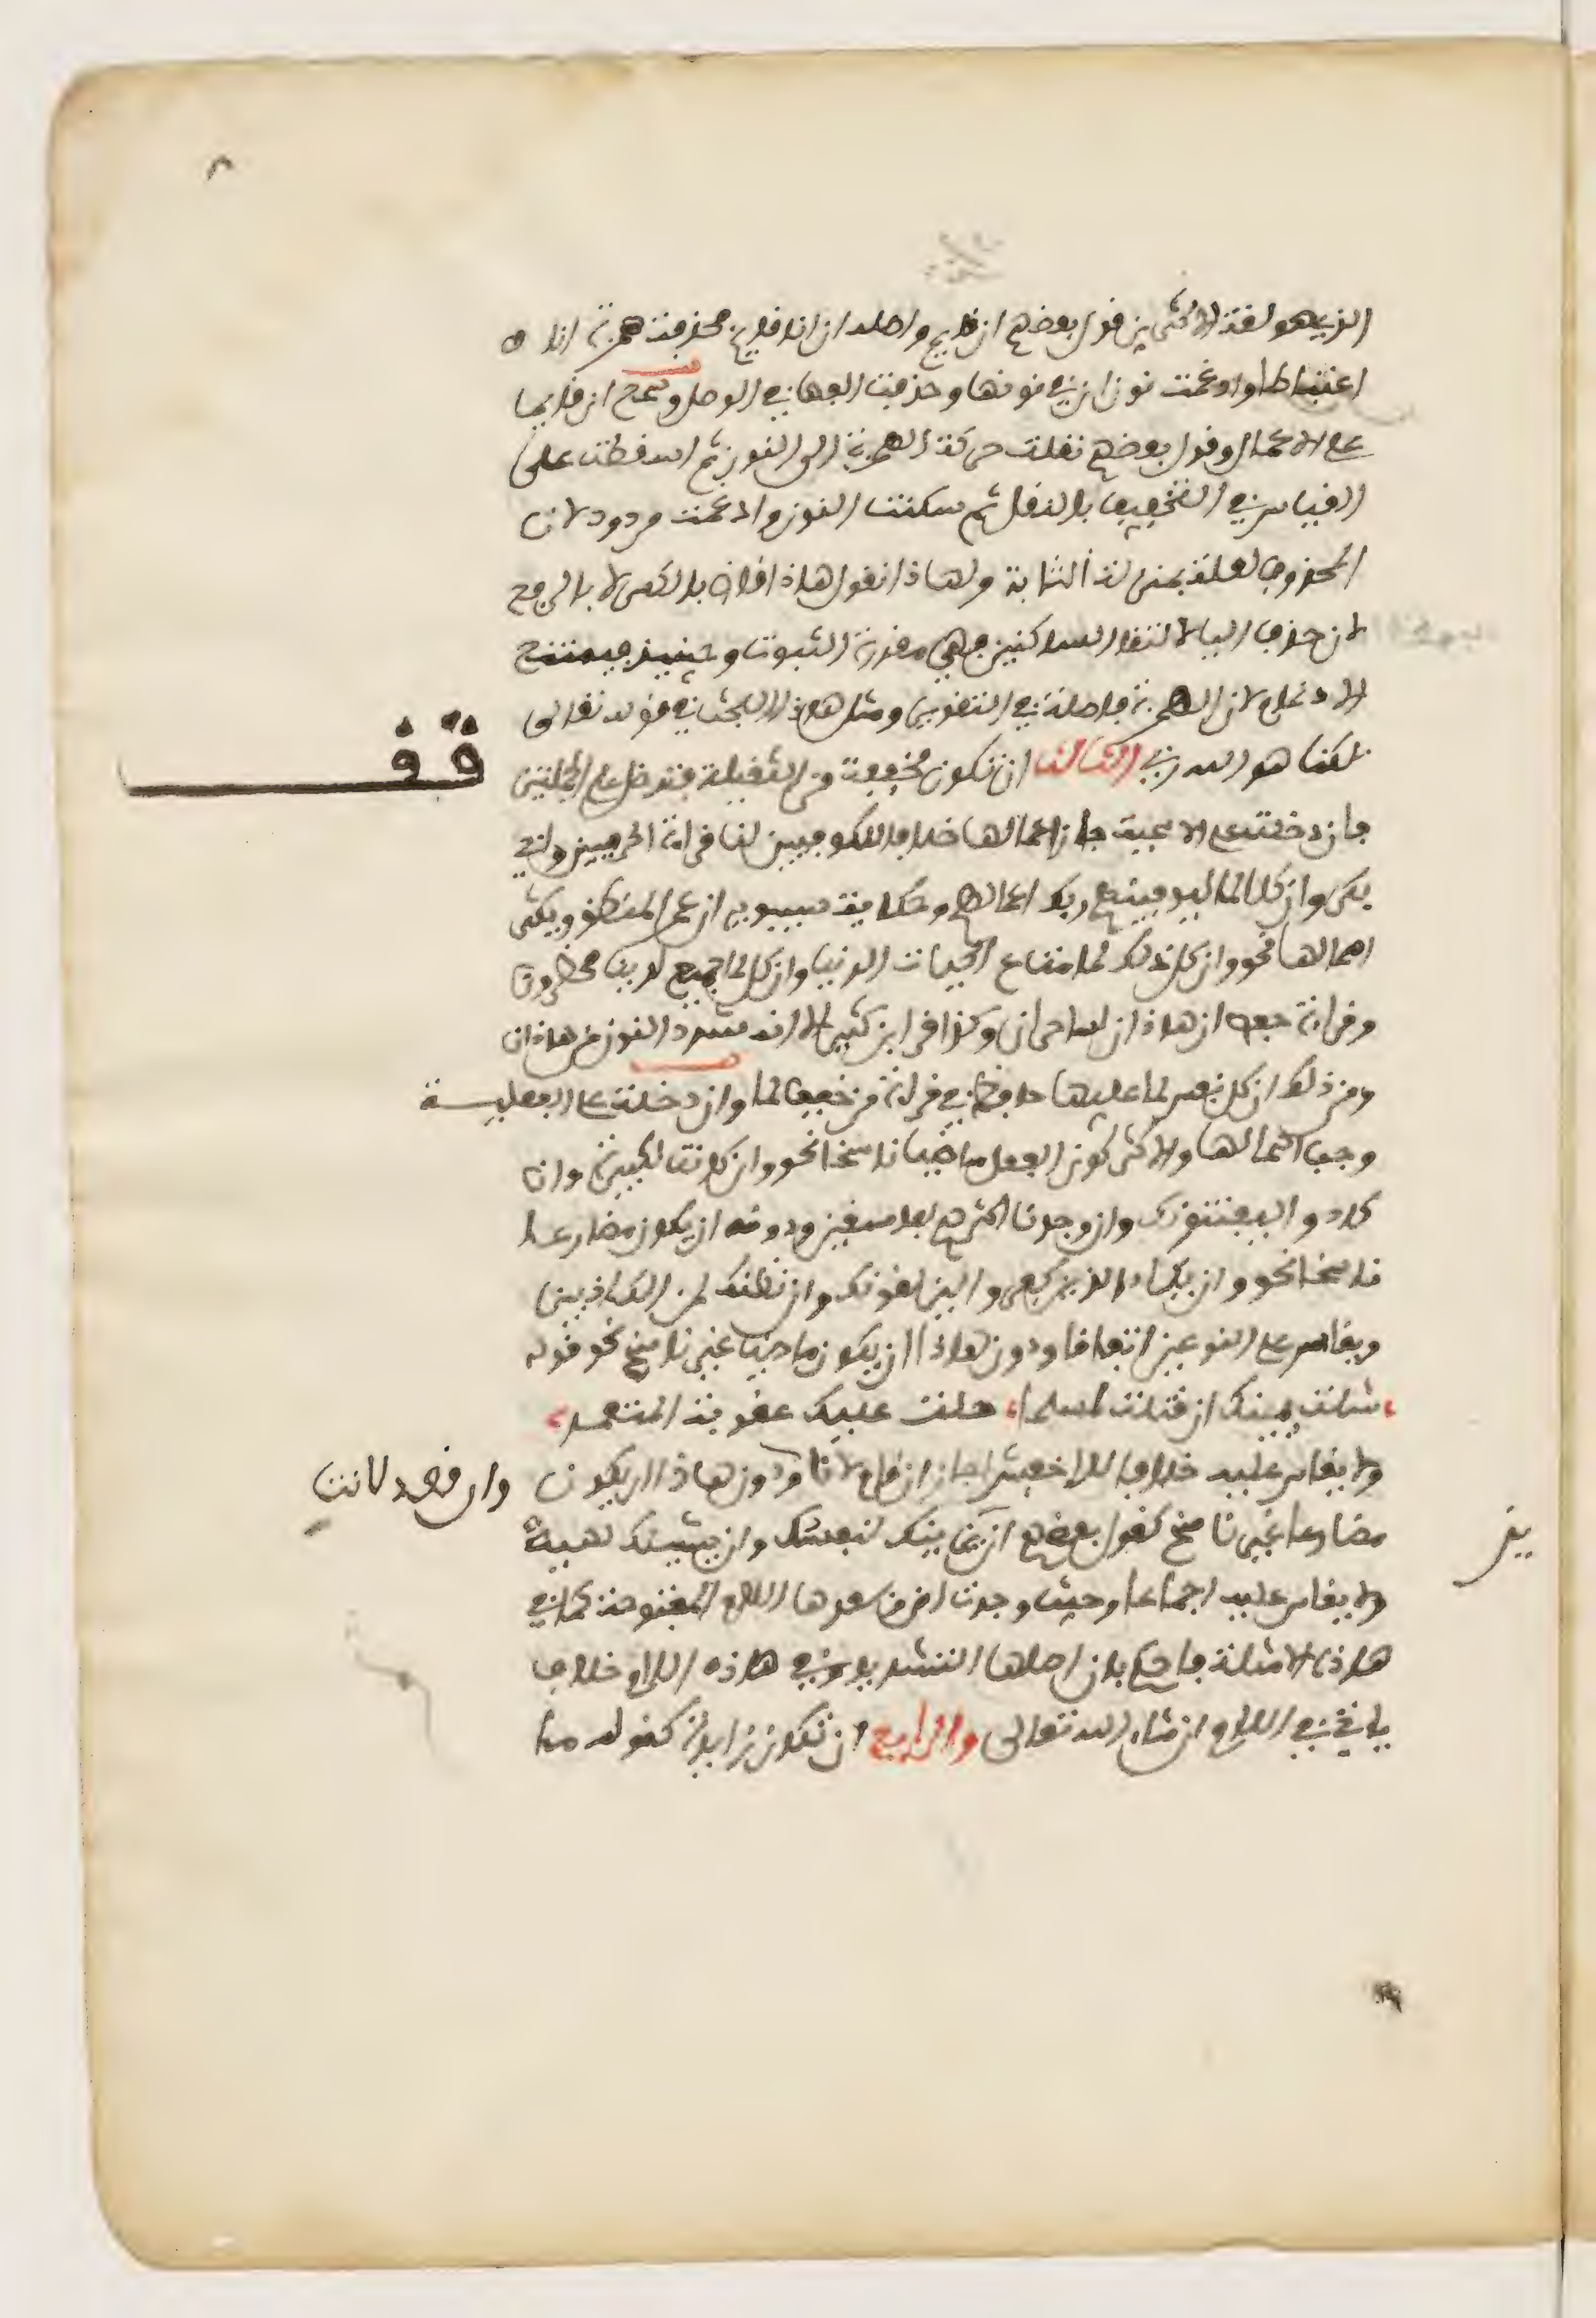 الذي هو لغة الاكثرين قول بعضهم ان قايم واصله ان انا قايم فحذفت همزة انا
اعتباطا وادغمت نون ان في نونها وحذفت الفها في الوصل وسمع ان قايما
على الاعمال وقول بعضهم نقلت حركة الهمزة الى النون ثم اسقطت على
القياس في التخفيف بالنقل ثم سكنت النون وادغمت مردود لان
المحذوف لعلة بمنزلة الثابت ولهاذا تقول هاذا قاض بالكسر لا بالرفع
لان حذف اليا لالتقا الساكنين فهي مقدرة الثبوت وحينيذ فيمتنع
الادغام لان الهمزة فاصلة في التقدير ومثل هاذا البحث في قوله تعالى
لكنا هو الله ربي الثالث ان تكون مخففة من الثقيلة فتدخل على الجملتين
قف
فان دخلت على الاسمية جاز اعمالها خلافا للكوفيين لنا قراءة الحرميين وابي
بكر وان كلا لما ليوفينهم ربك اعمالهم وحكاية سيبويه ان عمرا لمنطلق ويكثر
اهمالها نحو وان كل ذلك لما متاع الحياة الدنيا وان كل لما جميع لدينا محضرون
وقراءة حفص ان هاذان لساحران وكذا قرا ابن كثير الا انه شدد النون من هاذان
ومن ذلك ان كل نفس لما عليها حافظ في قراءة من خفف لما وان دخلت على الفعلية
وجب اهمالها والاكثر كون الفعل ماضيا ناسخا نحو وان كانت لكبيرة وان
كادوا ليفتنونك وان وجدنا اكثرهم لفاسقين ودونه ان يكون مضارعا
ناسخا نحو وان يكاد الذين كفروا ليزلقونك وان نظنك لمن الكاذبين
ويقاس على النوعين اتفاقا ودون هاذا ان يكون ماضيا غير ناسخ نحو قوله
شلت يمينك ان قتلت لمسلما حلت عليك عقوبة المتعمد
ولا يقاس عليه خلافا للاخفش اجاز ان قام لانا ودون هاذا ان يكون
وان قعد لانت
مضارعا غير ناسخ كقول بعضهم ان يزينك لنفسك وان يشينك لهيه
ولا يقاس عليه اجماعا وحيث وجدت ان وبعدها اللام المفتوحة كما في
هاذه الامثلة فاحكم بان اصلها التشديد وفي هاذه اللام خلاف
ياتي في اللام ان شاء الله تعالى والرابع ان تكون زايدة كقوله ما